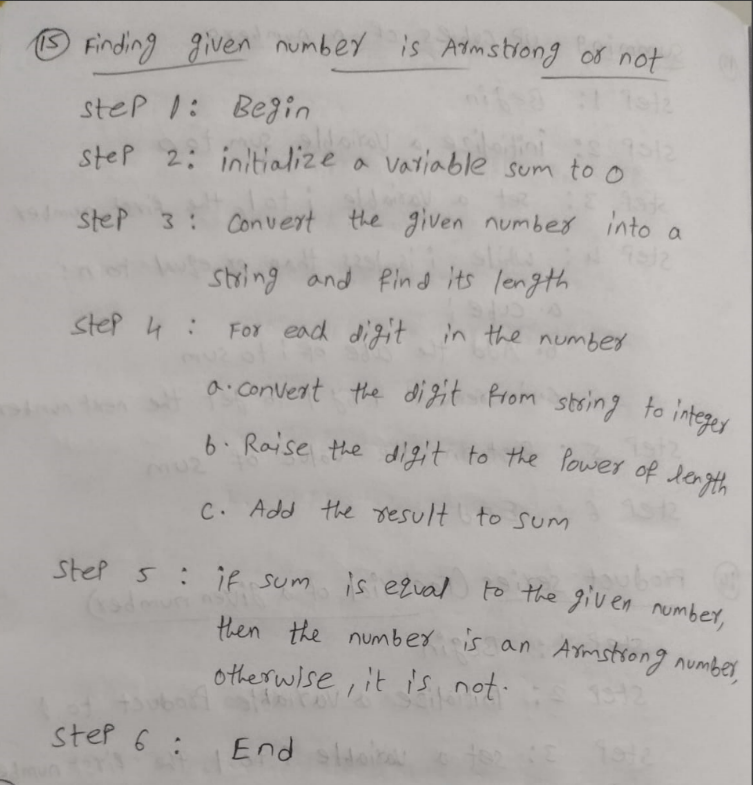 15 Finding given number is Armstrong or not
step 1: Begin
step 2: initialize a variable sum to 0
step 3: Convert the given number into a
string and find its length
step 4: For each digit in the number
a. convert the digit from string to integer
b. Raise the digit to the Power of length
c. Add the result to sum
step 5: if sum is equal to the given number,
then the number is an Armstrong number,
otherwise, it is not.
step 6: End